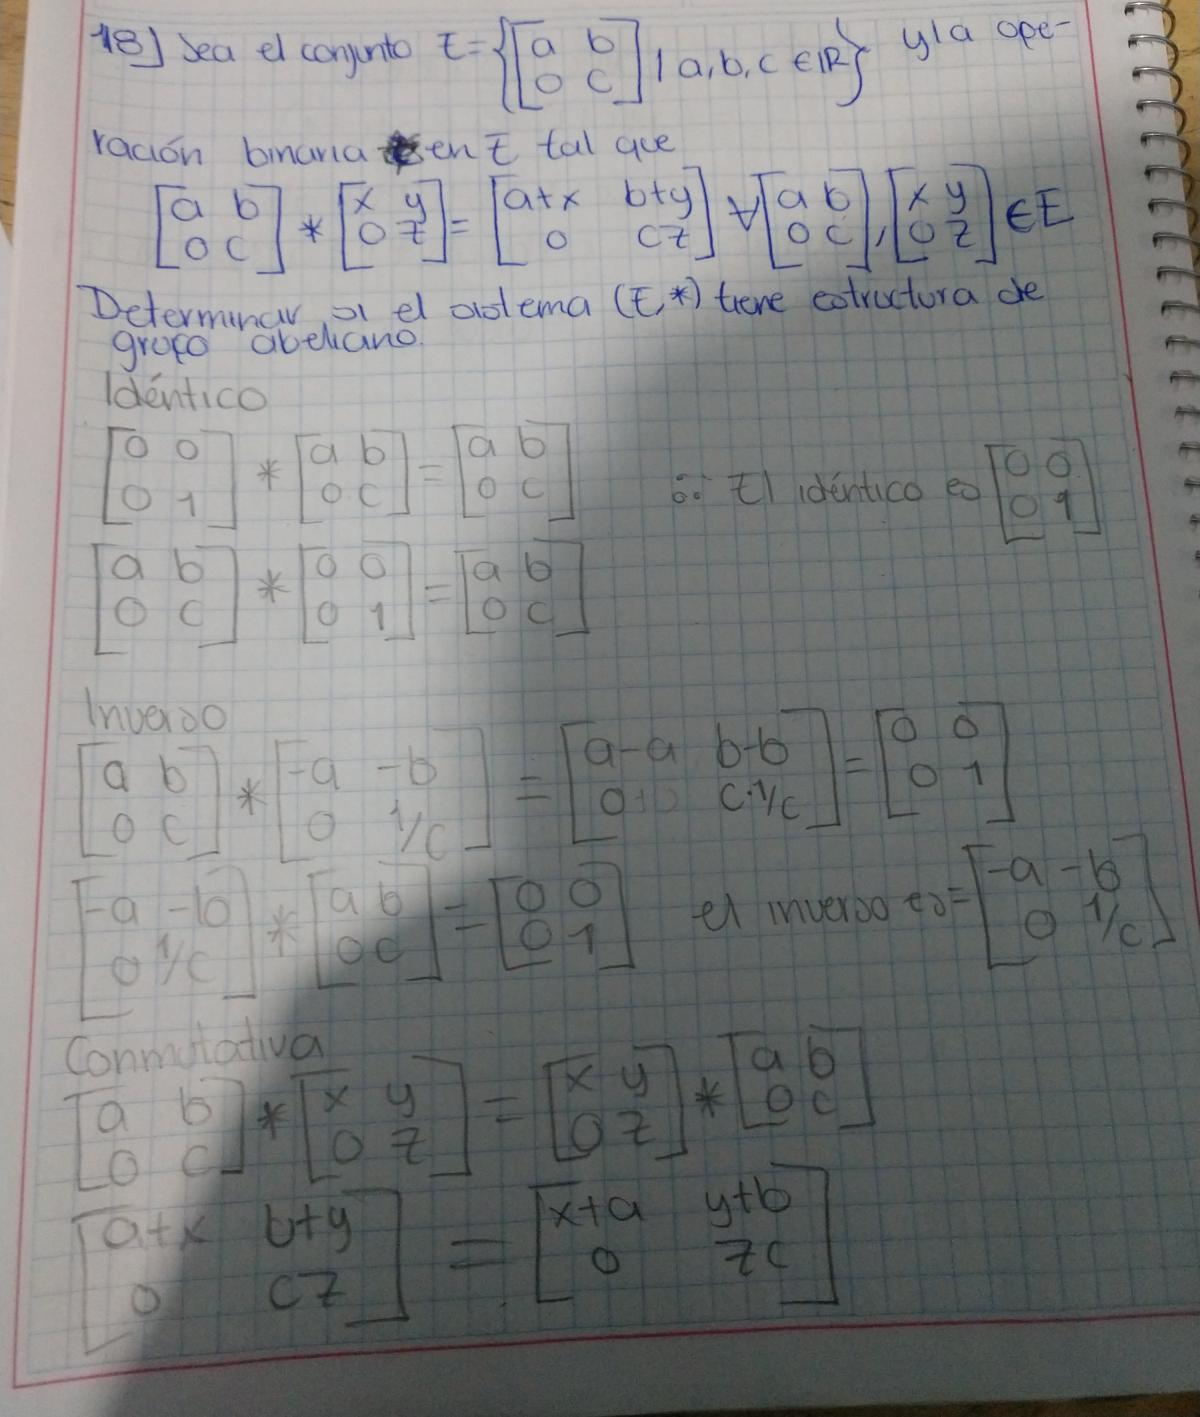 18] Sea el conjunto E={[a b; 0 c] | a,b,c ∈ℝ} y la ope-
ración binaria en E tal que
[a b; 0 c] * [x y; 0 z] = [a+x b+y; 0 cz] ∀[a b; 0 c], [x y; 0 z] ∈E
Determinar si el sistema (E,*) tiene estructura de
grupo abeliano.
Idéntico
[0 0; 0 1] * [a b; 0 c] = [a b; 0 c] ∴ El idéntico es [0 0; 0 1]
[a b; 0 c] * [0 0; 0 1] = [a b; 0 c]
Inverso
[a b; 0 c] * [-a -b; 0 1/c] = [a-a b-b; 0 c·1/c] = [0 0; 0 1]
[-a -b; 0 1/c] * [a b; 0 c] = [0 0; 0 1] el inverso es= [-a -b; 0 1/c]
Conmutativa
[a b; 0 c] * [x y; 0 z] = [x y; 0 z] * [a b; 0 c]
[a+x b+y; 0 cz] = [x+a y+b; 0 zc]